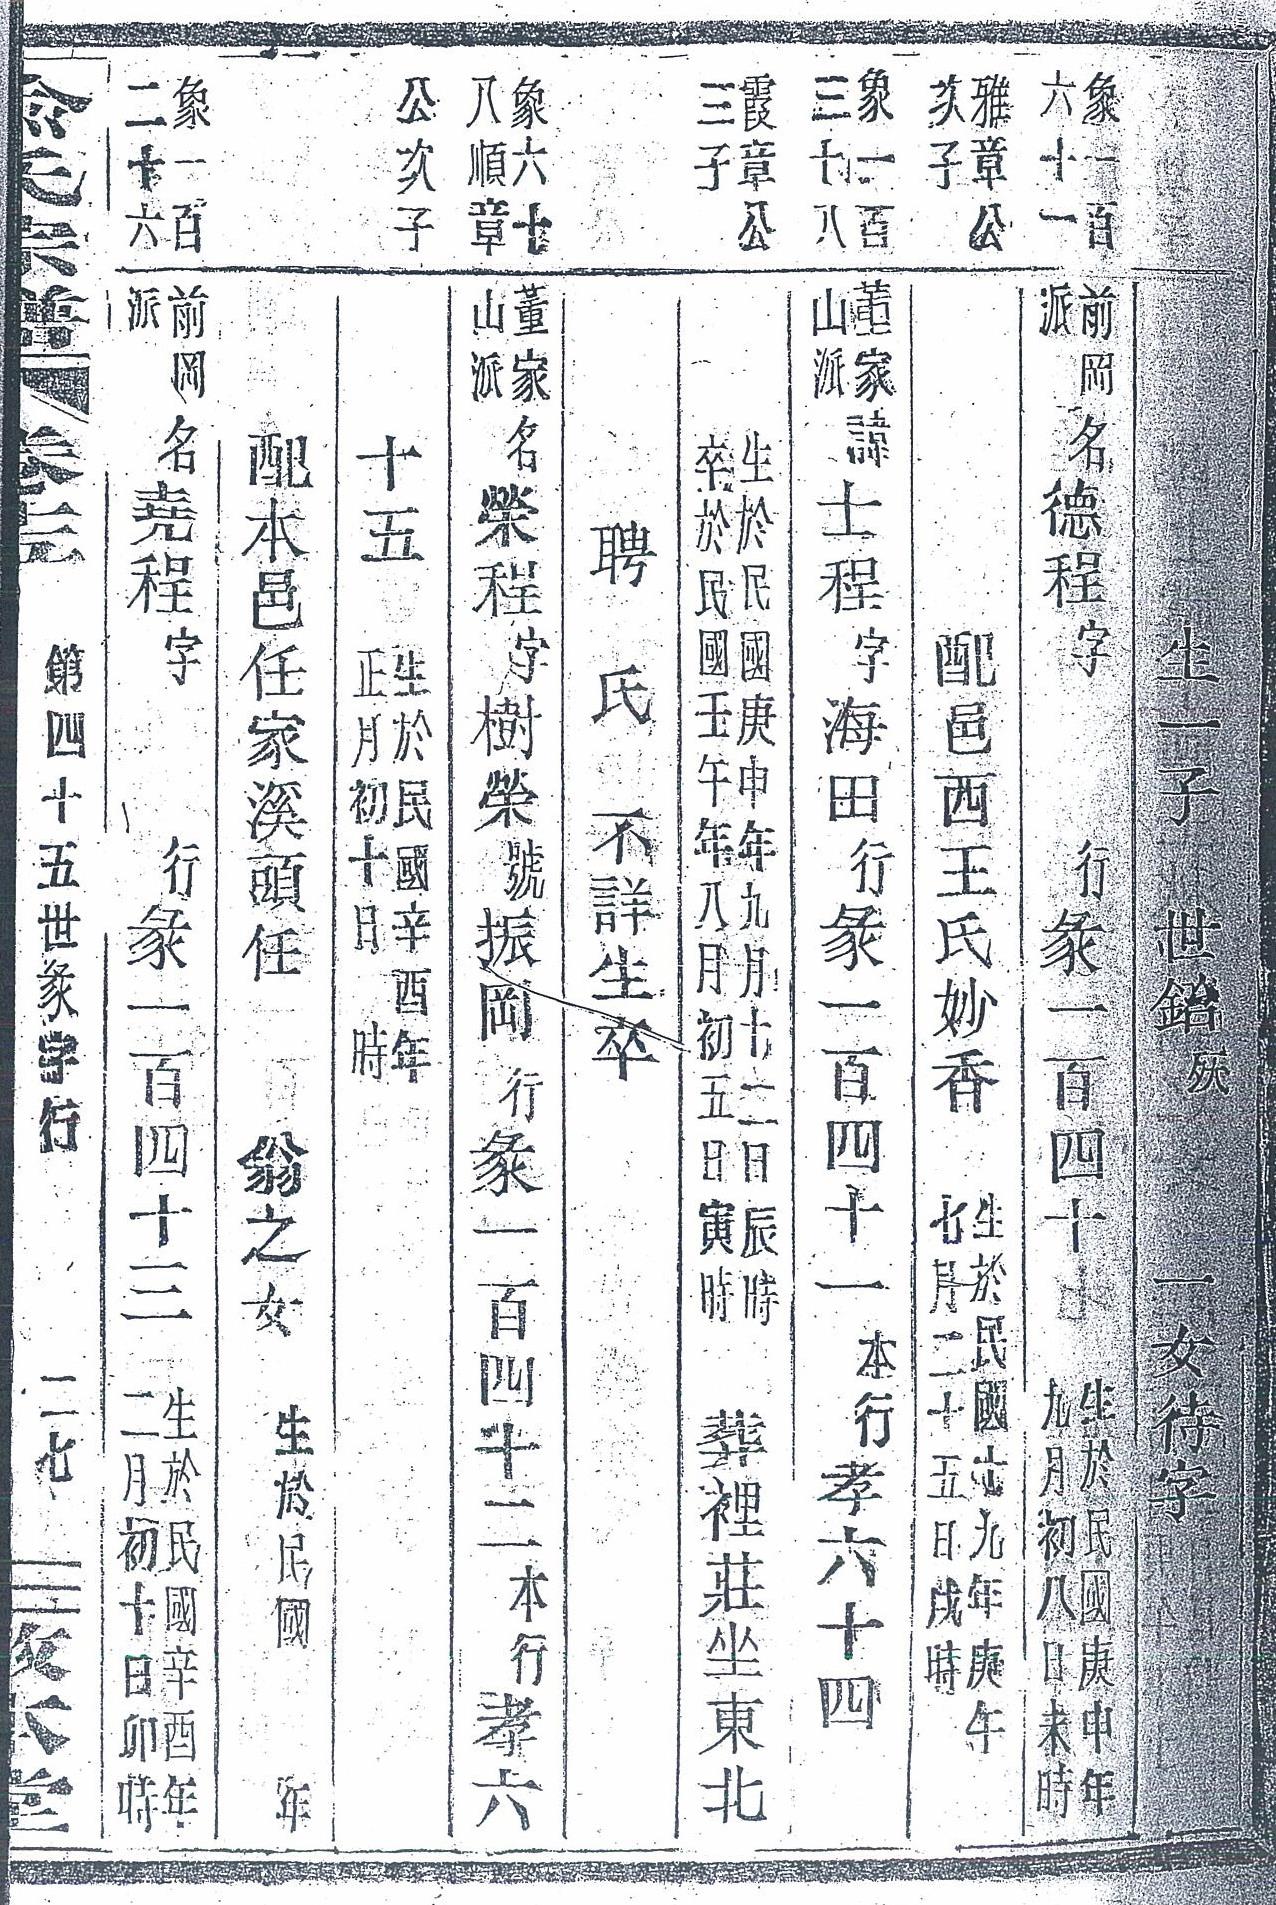 生一子　世鉛殀　一女待字
象一百
六十一
前岡
派
名德程字　行彖一百四十
生於民國庚申年
九月初八日未時
雅章公
次子
配邑西王氏妙香
生於民國十九年庚午
七月二十五日戌時
象一百
三十八
董家
山派
諱士程字海田行彖一百四十一本行孝六十四
霞章公
三子
生於民國庚申年九月十二日辰時
卒於民國壬午年八月初五日寅時
葬裡莊坐東北
聘　氏　不詳生卒
象六十
八順章
董家
山派
名榮程字樹榮號振岡行彖一百四十二本行孝六
公次子
十五
生於民國辛酉年
正月初十日　時
配本邑任家溪頭任　翁之女
生於民國　年
象一百
二十六
前岡
派
名堯程字　行彖一百四十三
生於民國辛酉年
二月初十日卯時
俞氏宗譜　卷三　第四十五世彖字行　二七　敦本堂